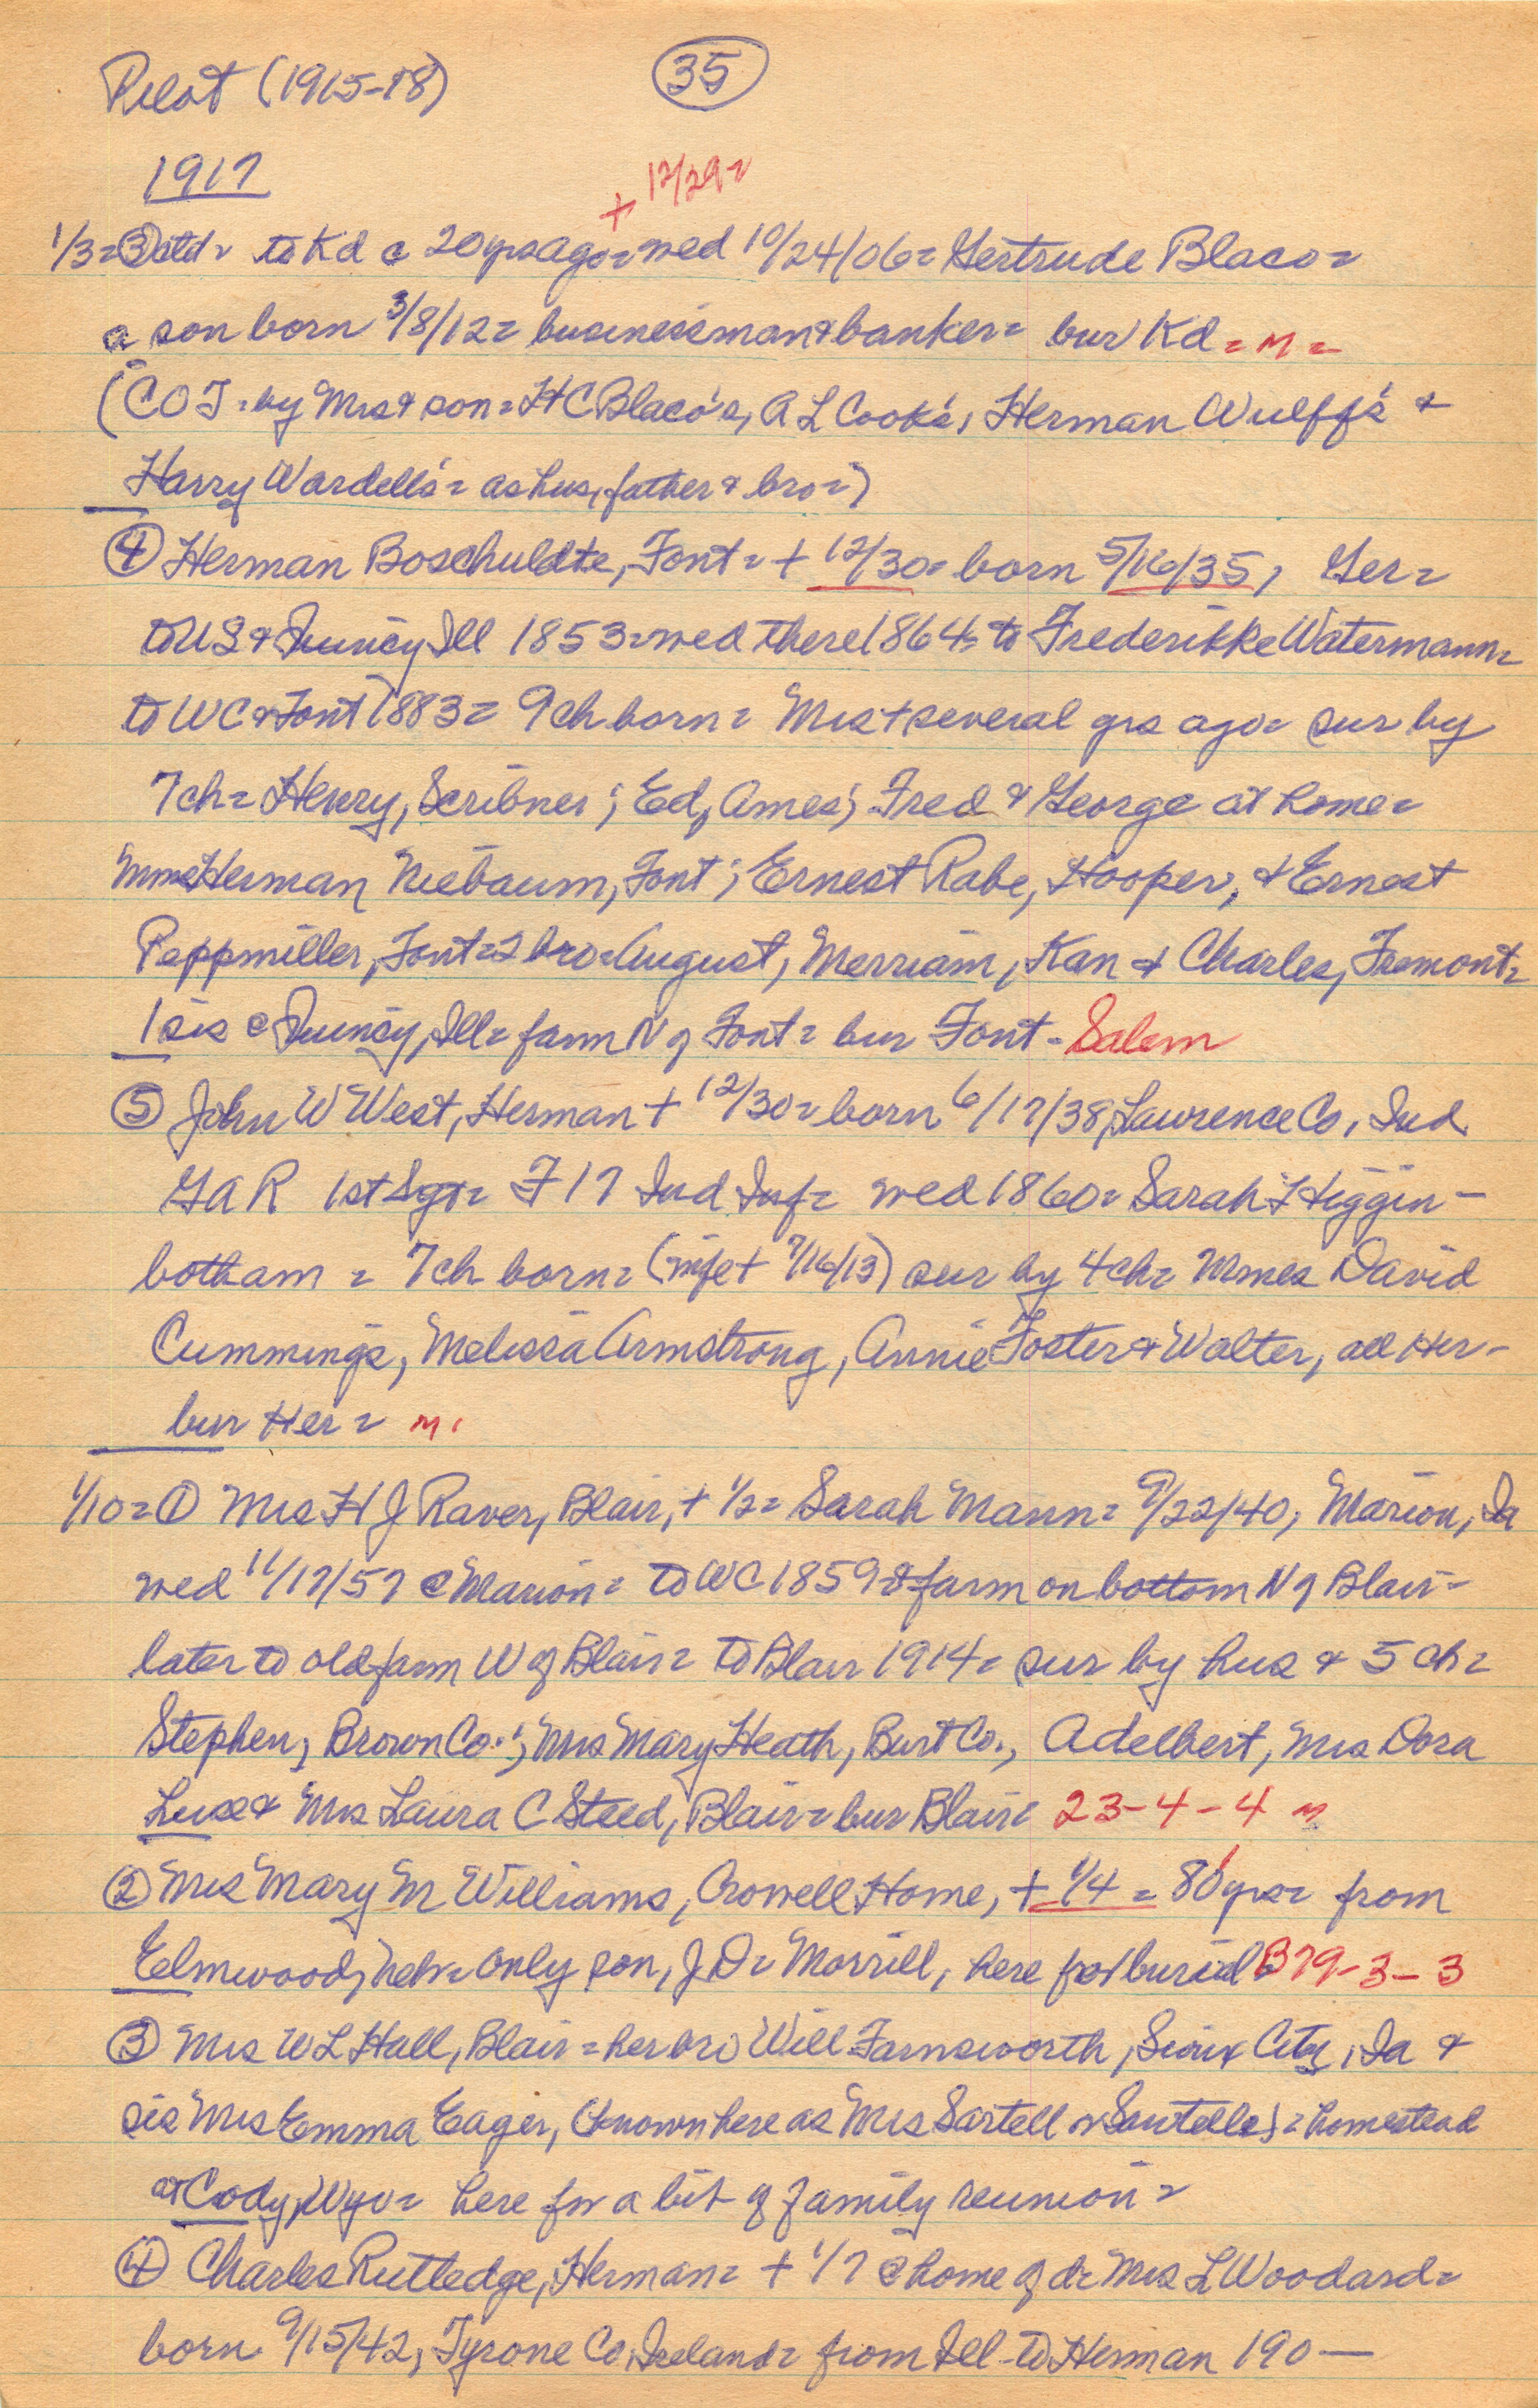 Pilot (1915-18) 35
1917
+ 12/29=
1/3= ③ctd= to Kd c 20 yrs ago= wed 10/24/06= Gertrude Blaco=
a son born 3/8/12= businessman & banker= bur Kd = M =
(COT= by Mrs & son= H C Blaco's, A L Cook's, Herman Wulff's &
Harry Wardell's= as hus, father & bro=)
④ Herman Boschuldte, Font= + 12/30= born 5/16/35, Ger=
to US & Quincy Ill 1853= wed there 1864= to Frederikke Watermann=
to WC & Font 1883= 9 ch born= Mrs + several yrs ago= sur by
7 ch= Henry, Scribner; Ed, Ames; Fred & George at home=
Mmes Herman Niebaum, Font; Ernest Rabe, Hooper, & Ernest
Peppmiller, Font= 2 bro= August, Merriam, Kan & Charles, Fremont=
1 sis @ Quincy, Ill= farm N of Font= bur Font - Salem
⑤ John W West, Herman + 12/30= born 6/17/38, Lawrence Co, Ind
GAR 1st Sgt= F 17 Ind Inf= wed 1860= Sarah F Higgin-
botham = 7 ch born= (wife + 7/16/13) sur by 4 ch= Mmes David
Cummings, Melissa Armstrong, Annie Foster & Walter, all Her-
bur Her= M.
1/10= ① Mrs H J Raver, Blair, + 1/2= Sarah Mann= 9/22/40, Marion, Ia
wed 11/17/57 @ Marion= to WC 1859 & farm on bottom N of Blair-
later to old farm W of Blair= to Blair 1914= sur by hus & 5 ch=
Stephen, Brown Co.; Mrs Mary Heath, Burt Co., Adelbert, Mrs Dora
Luse & Mrs Laura C Steed, Blair= bur Blair= 23-4-4 M
② Mrs Mary M Williams, Crowell Home, + 1/4 = 80 yrs= from
Elmwood, Neb= only son, J D= Morrill, here for burial B79-3-3
③ Mrs W L Hall, Blair= her bro Will Farnsworth, Sioux City, Ia &
sis Mrs Emma Eager, (known here as Mrs Sartell or Sautelle)= homestead
at Cody, Wyo= here for a bit of family reunion=
④ Charles Rutledge, Herman= + 1/7 @ home of d= Mrs L Woodard=
born 9/15/42, Tyrone Co, Ireland= from Ill - to Herman 190—